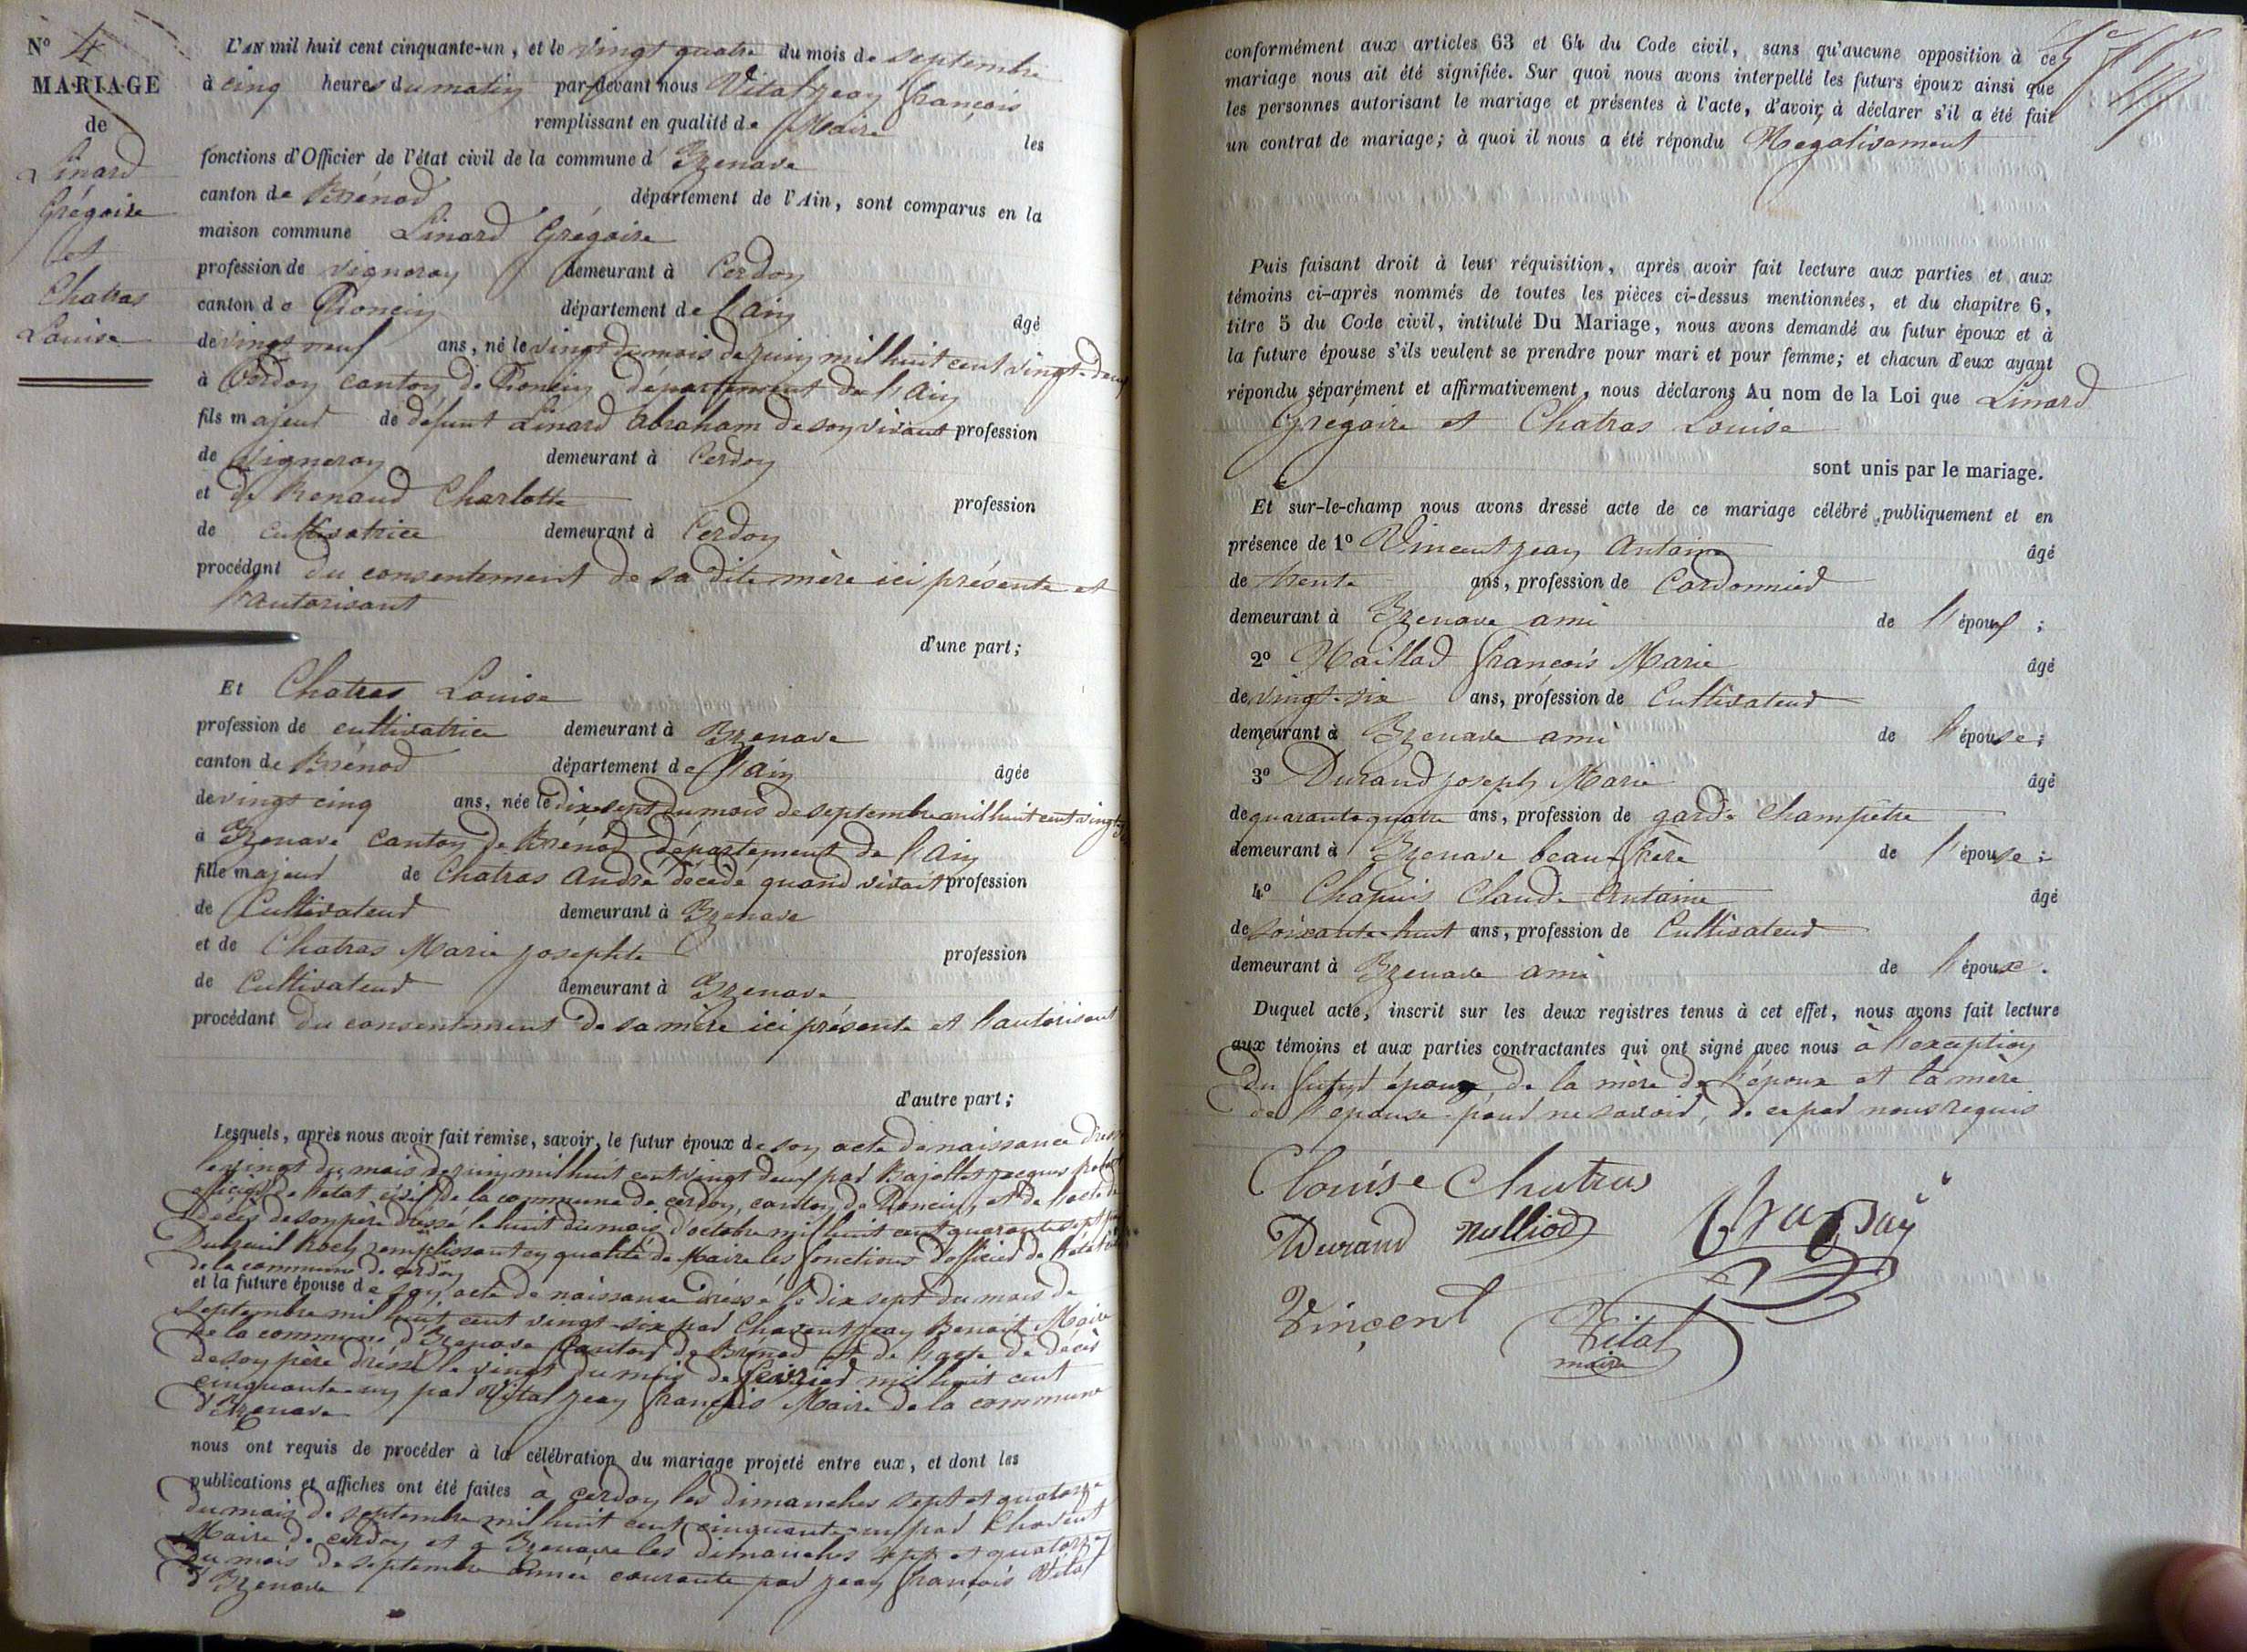 N° 4
MARIAGE
de
Linard
Grégoire
et
Chatras
Louise
L'AN mil huit cent cinquante-un, et le vingt quatre du mois de septembre
à cinq heures du matin par-devant nous Vital jean françois
remplissant en qualité de Maire les
fonctions d'Officier de l'état civil de la commune d' Izenave
canton de Brénod département de l'Ain, sont comparus en la
maison commune Linard Grégoire
profession de vigneron demeurant à Cerdon
canton de Poncin département de l'ain âgé
de vingt neuf ans, né le vingt du mois de juin mil huit cent vingt-deux
à Cerdon canton de Poncin département de l'ain
fils majeur de défunt Linard abraham de son vivant profession
de vigneron demeurant à Cerdon
et de Renaud Charlotte profession
de cultivatrice demeurant à Cerdon
procédant du consentement de sa dite mère ici présente et
l'autorisant
d'une part;
Et Chatras Louise
profession de cultivatrice demeurant à Izenave
canton de Brénod département de l'ain âgée
de vingt cinq ans, née le dix sept du mois de septembre mil huit cent vingt
à Izenave canton de Brénod département de l'ain
fille majeur de Chatras andré décédé quand vivait profession
de Cultivateur demeurant à Izenave
et de Chatras Marie josephte profession
de Cultivateur demeurant à Izenave
procédant du consentement de sa mère ici présente et l'autorisant
d'autre part;
Lesquels, après nous avoir fait remise, savoir, le futur époux de son acte de naissance
le vingt du mois de juin mil huit cent vingt deux par Bajollet jacques
officier de l'état civil de la commune de cerdon, canton de Poncin, et de l'acte de
décès de son père dressé le huit du mois d'octobre mil huit cent quarante sept
Dubreuil Roch remplissant en qualité de Maire les fonctions d'officier de l'état
de la commune de cerdon
et la future épouse de son acte de naissance dressé le dix sept du mois de
septembre mil huit cent vingt-six par Chavent jean Benoit Maire
de la commune d'Izenave Canton de Brénod et de l'acte de décès
de son père dressé le vingt du mois de février mil huit cent
cinquante-un par Vital jean françois Maire de la commune
d'Izenave
nous ont requis de procéder à la célébration du mariage projeté entre eux, et dont les
publications et affiches ont été faites à cerdon les dimanches sept et quatorze
du mois de septembre mil huit cent cinquante-un par Chavent
Maire de cerdon et à Izenave les dimanches sept et quatorze
du mois de septembre année courante par jean françois Vital
d'Izenave
conformément aux articles 63 et 64 du Code civil, sans qu'aucune opposition à ce
mariage nous ait été signifiée. Sur quoi nous avons interpellé les futurs époux ainsi que
les personnes autorisant le mariage et présentes à l'acte, d'avoir à déclarer s'il a été fait
un contrat de mariage; à quoi il nous a été répondu Negativement
Puis faisant droit à leur réquisition, après avoir fait lecture aux parties et aux
témoins ci-après nommés de toutes les pièces ci-dessus mentionnées, et du chapitre 6,
titre 5 du Code civil, intitulé Du Mariage, nous avons demandé au futur époux et à
la future épouse s'ils veulent se prendre pour mari et pour femme; et chacun d'eux ayant
répondu séparément et affirmativement, nous déclarons Au nom de la Loi que Linard
Gregoire et Chatras Louise
sont unis par le mariage.
Et sur-le-champ nous avons dressé acte de ce mariage célébré publiquement et en
présence de 1° Vincent jean Antoine âgé
de trente ans, profession de Cordonnier
demeurant à Izenave ami de l'époux ;
2° françois Marie âgé
de vingt-six ans, profession de Cultivateur
demeurant à Izenave ami de l'épouse ;
3° Durand joseph Marie âgé
de quarante quatre ans, profession de garde Champêtre
demeurant à Izenave beau-frère de l'épouse ;
4° Chapuis Claude Antoine âgé
de soixante-huit ans, profession de Cultivateur
demeurant à Izenave ami de l'époux.
Duquel acte, inscrit sur les deux registres tenus à cet effet, nous avons fait lecture
aux témoins et aux parties contractantes qui ont signé avec nous à l'exception
du futur époux de la mère de l'époux et la mère
de l'épouse pour ne savoir, de ce par nous requis
Louise Chatras
Durand
Vincent
Vital
maire